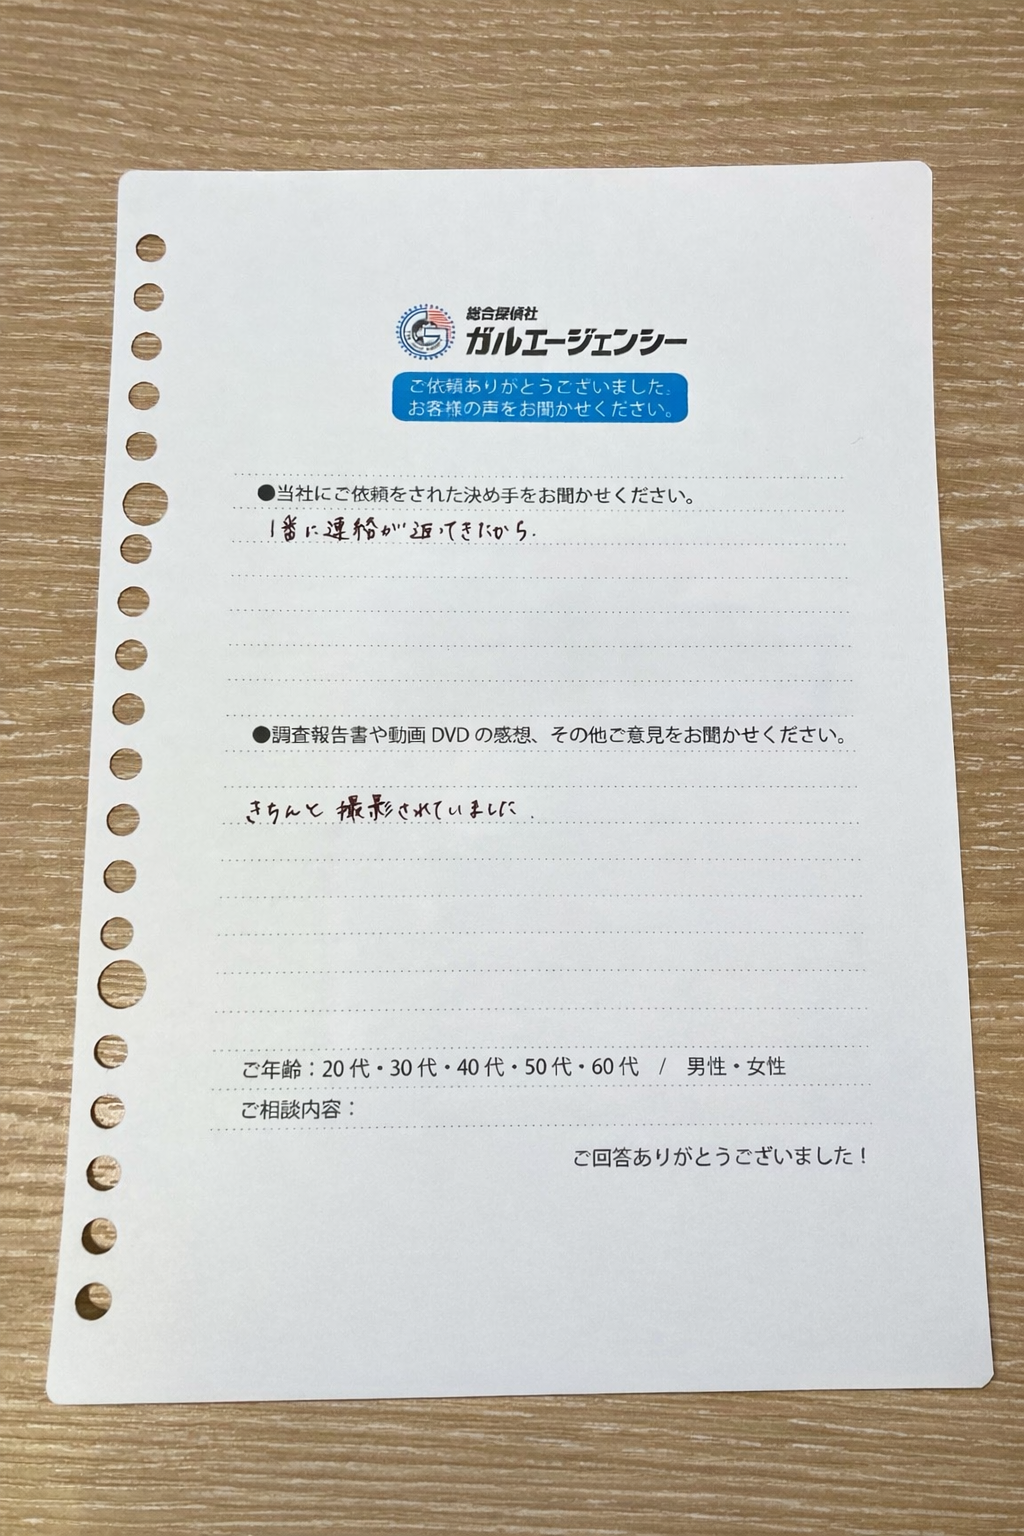 総合探偵社
ガルエージェンシー
ご依頼ありがとうございました。
お客様の声をお聞かせください。
●当社にご依頼をされた決め手をお聞かせください。
1番に連絡が返ってきたから.
●調査報告書や動画 DVD の感想、その他ご意見をお聞かせください。
きちんと撮影されていました.
ご年齢：20 代・30 代・40 代・50 代・60 代 / 男性・女性
ご相談内容：
ご回答ありがとうございました！